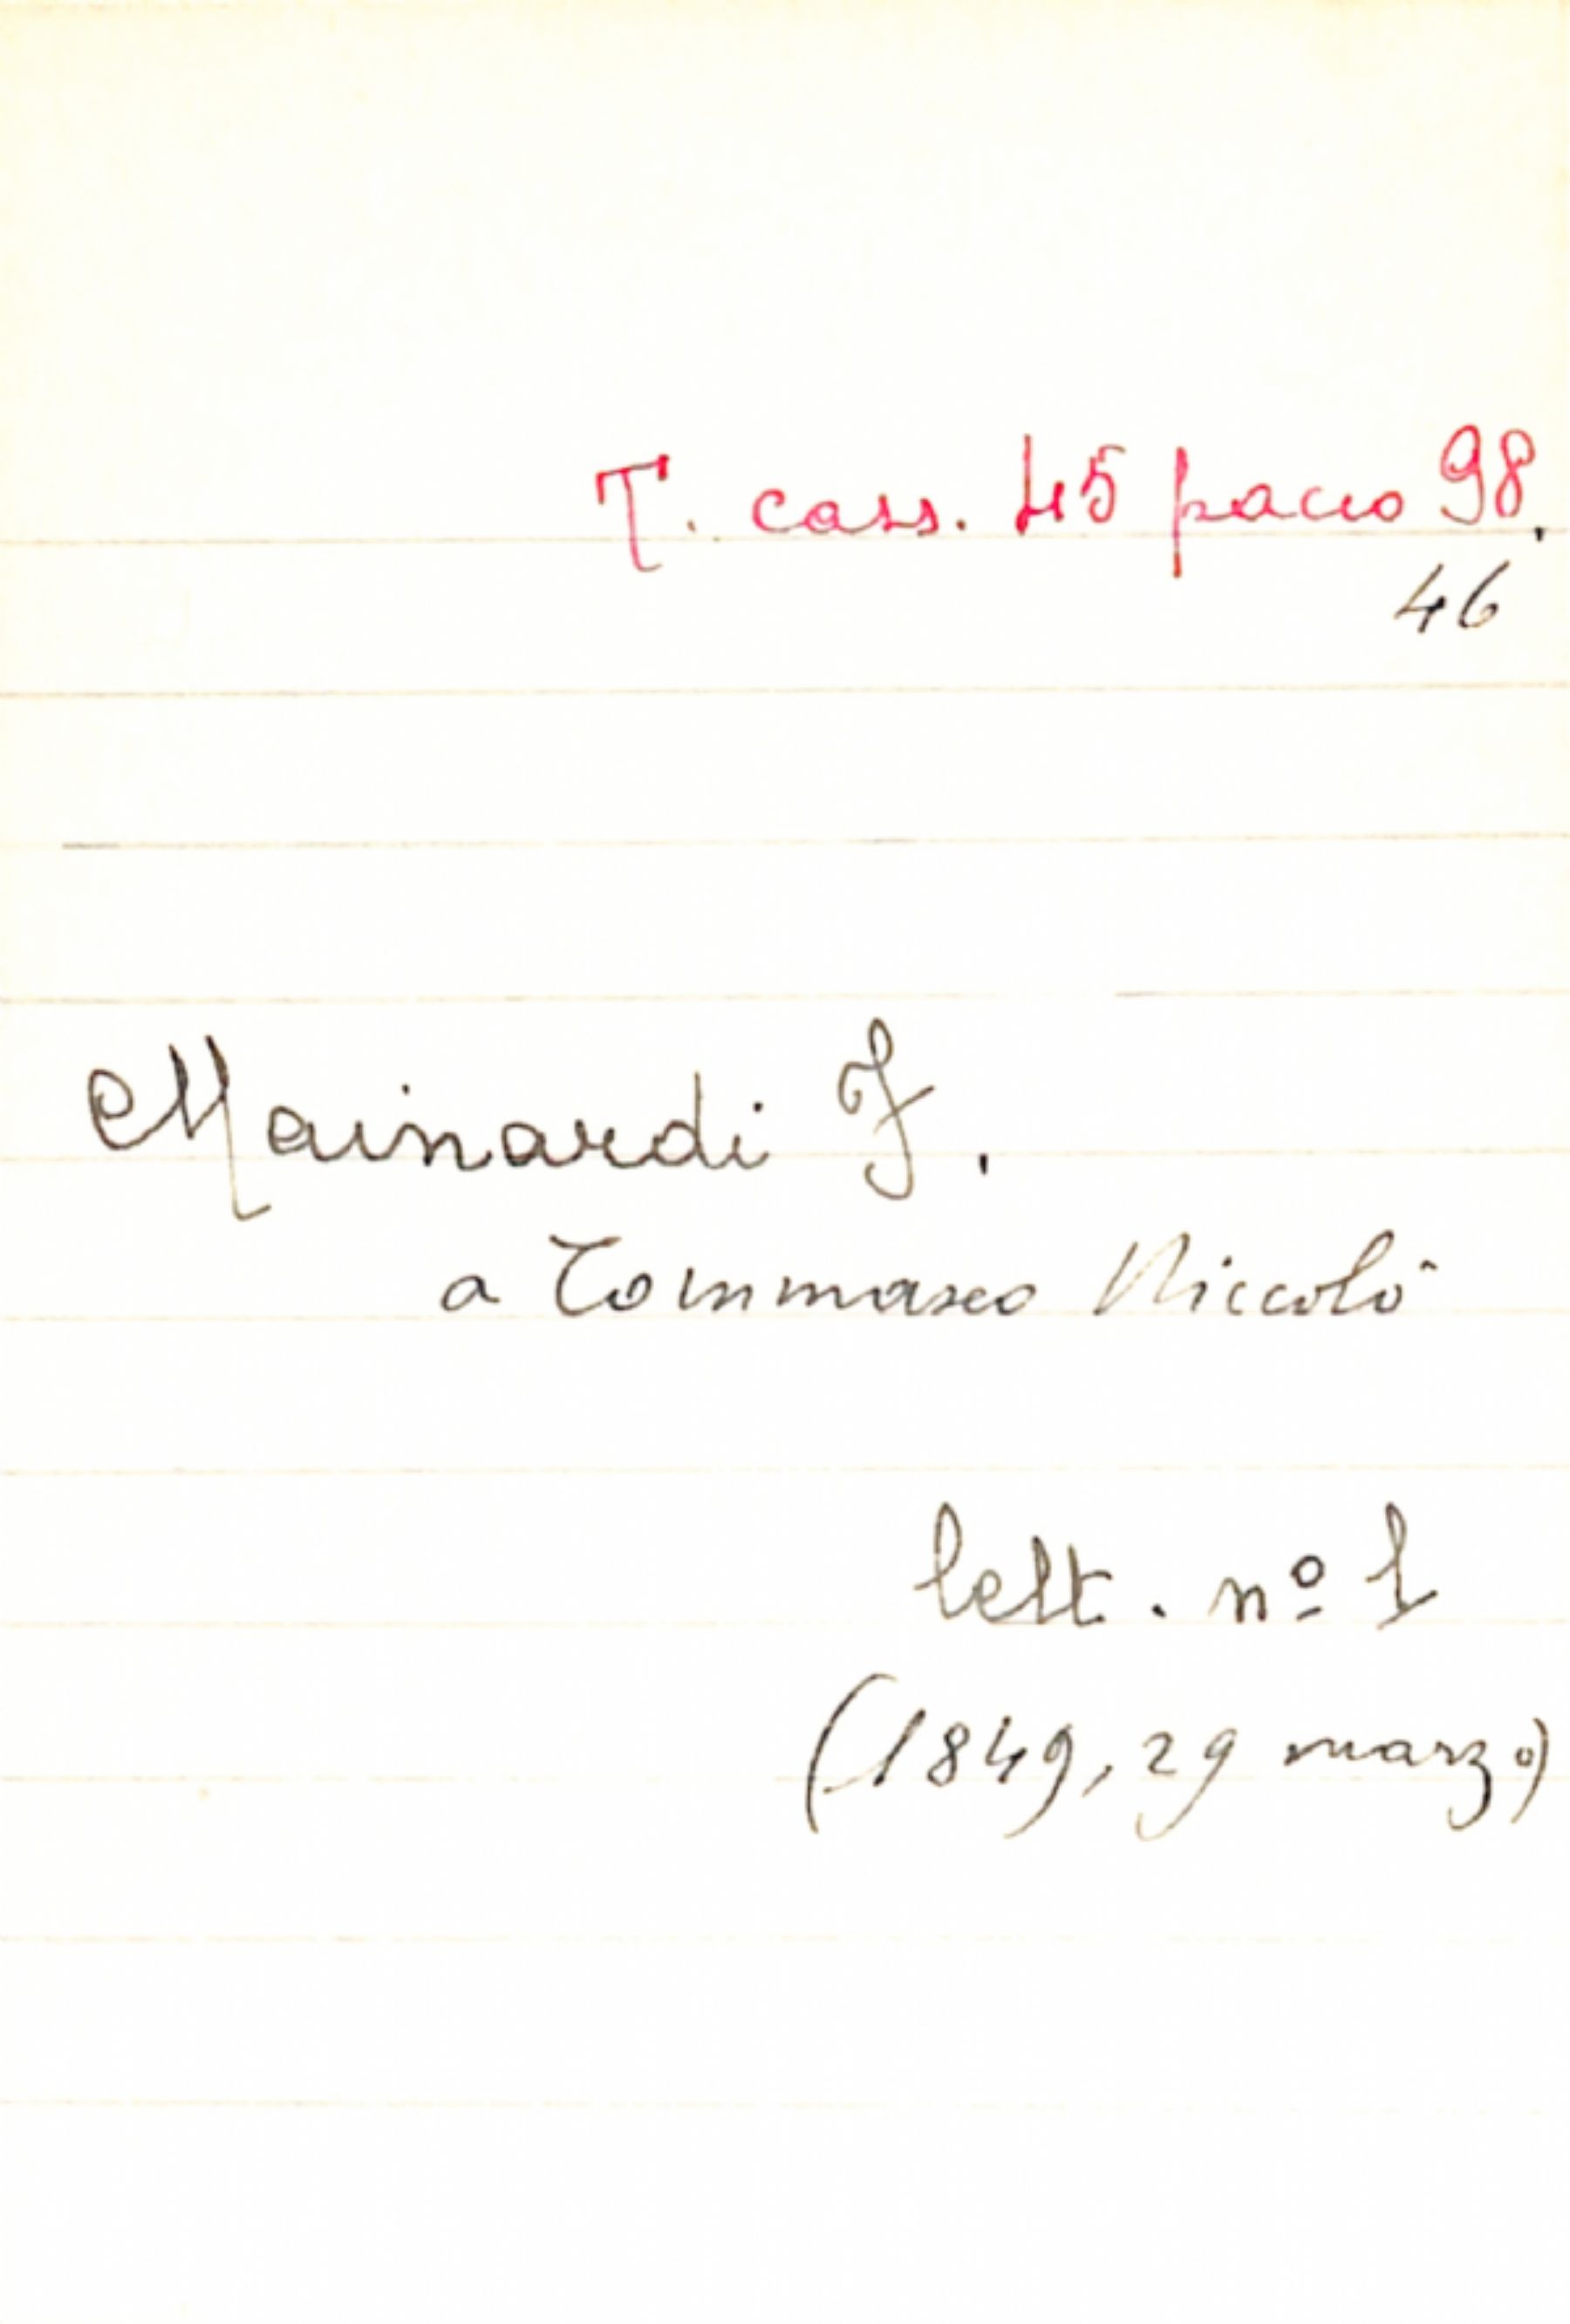 T. cass. 45 pacco 98.
46
Mainardi F.
a Tommaseo Niccolò
lett. nº 1
(1849, 29 marzo)